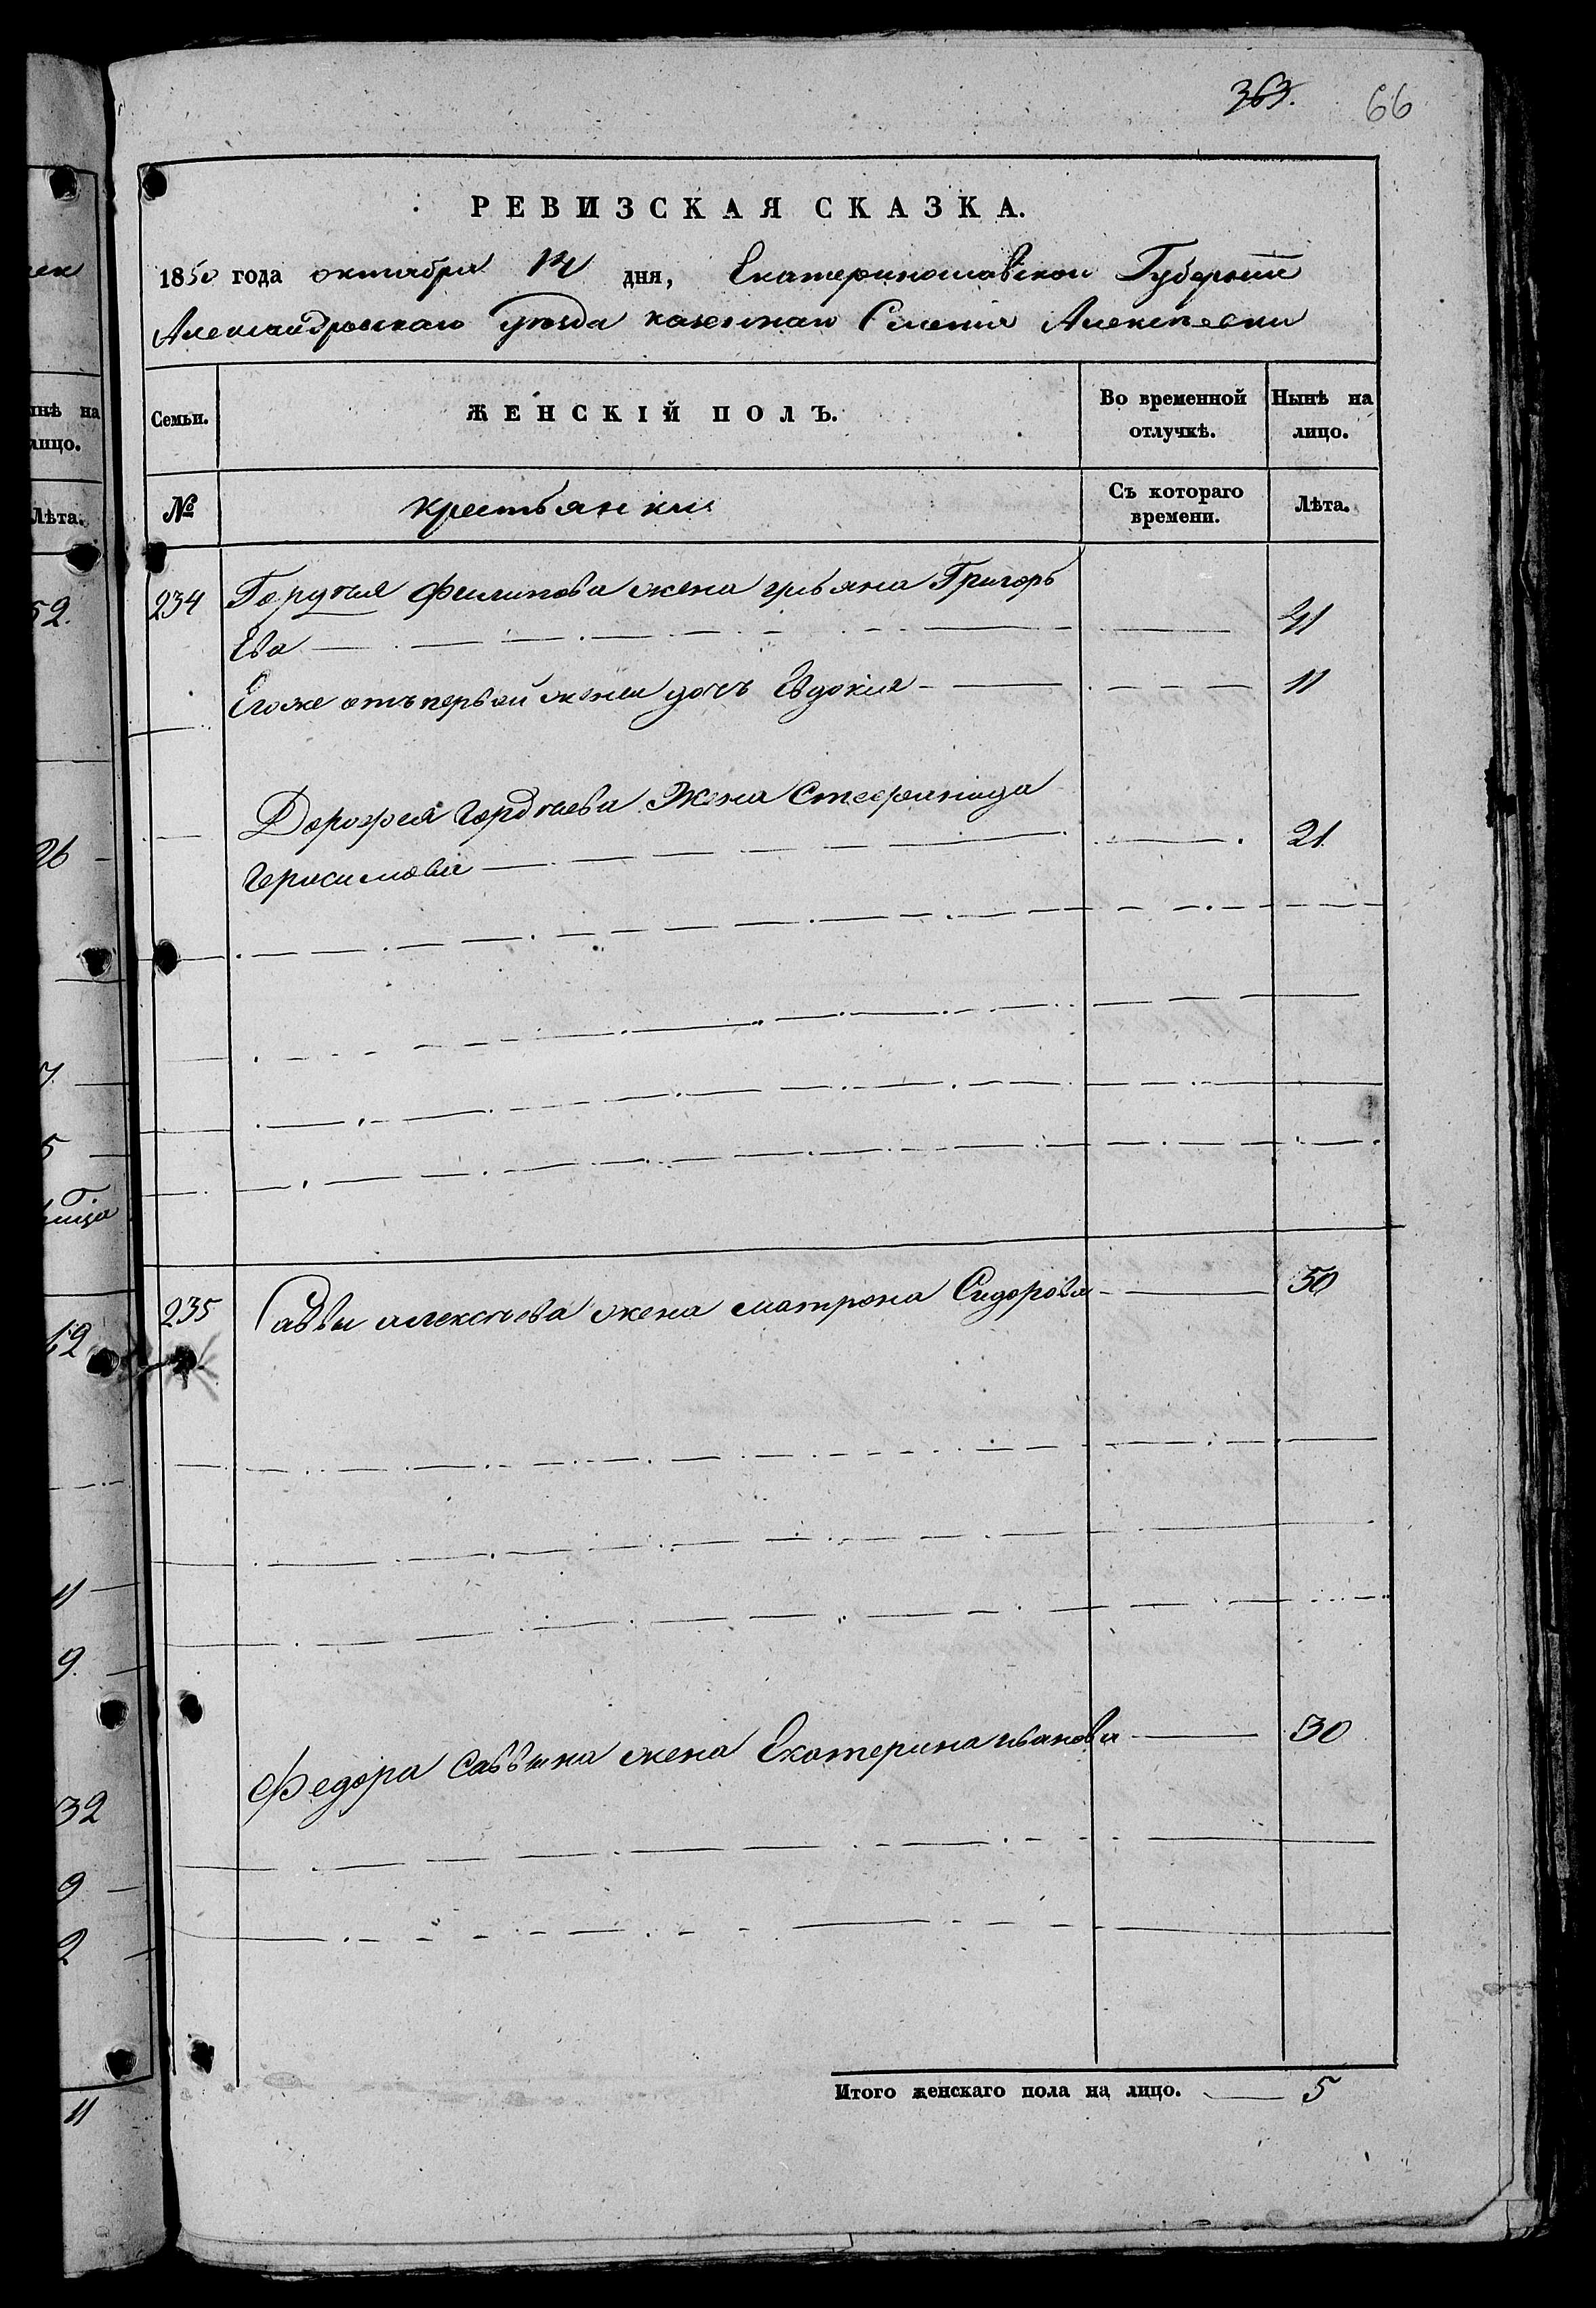 363. 66
РЕВИЗСКАЯ СКАЗКА.
1850 года октября 14 дня, Екатеринославской Губернии
Александровскаго уѣзда казеннаго Селенія Алексѣевки
Семьи. ЖЕНСКІЙ ПОЛЪ. Во временной отлучкѣ. Нынѣ на лицо.
№ крестьянки Съ котораго времени. Лѣта.
234 Гордѣя Филипова жена ульяна Григорь
Ева 41
Егоже отъ первой жены дочь Евдокия 11
Дорофея Гордѣева Жена Стефанида
Герасимова 21
235 Саввы алексѣева жена матрона Сидорова 50
Федора Саввина жена Екатерина иванова 30
Итого женскаго пола на лицо. 5
ек
нѣ на
лицо.
Лѣта.
52.
26
7.
5
ница
62
11
9.
32
9
2
11